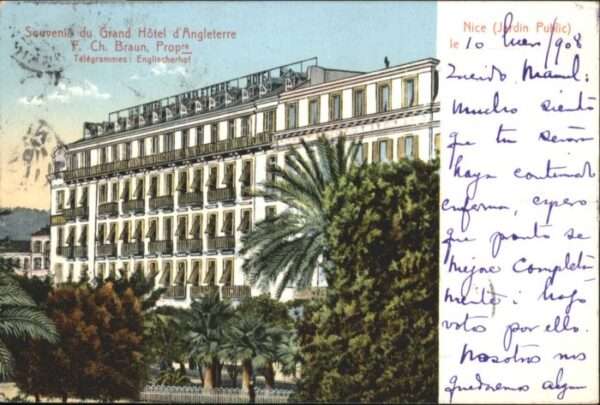 Souvenir du Grand Hôtel d'Angleterre
F. Ch. Braun, Propre
Télégrammes: Englischerhof
Nice (Jardin Public)
le 10 Enero/908
Querido Manuel:
Mucho siento
que tu señora
haya continuado
enferma, espero
que pronto se
mejore completa
mente i hago
votos por ello.
Nosotros nos
quedaremos algun